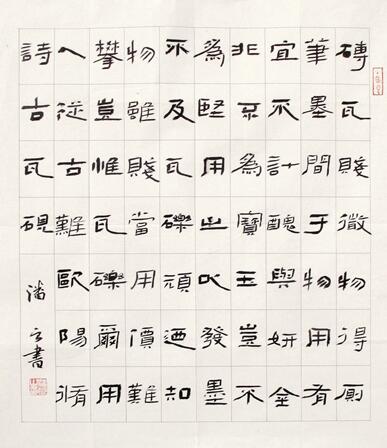 磚瓦賤微物得厠
筆墨間于物用有
宜不計醜與妍金
非不為寶玉豈不
為堅用之以發墨
不及瓦礫頑迺知
物雖賤當用價難
攀豈惟瓦礫爾用
人從古難歐陽脩
詩古瓦硯
潘書